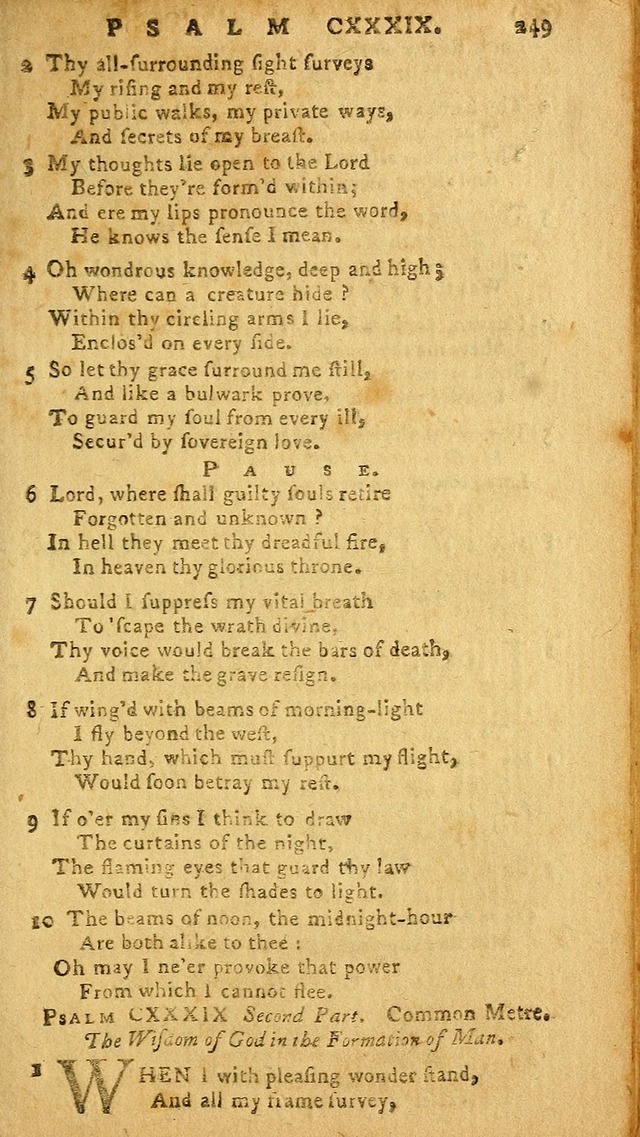 PSALM CXXXIX. 249
2 Thy all-ſurrounding ſight ſurveys
My riſing and my reſt,
My public walks, my private ways,
And ſecrets of my breaſt.
3 My thoughts lie open to the Lord
Before they're form'd within;
And ere my lips pronounce the word,
He knows the ſenſe I mean.
4 Oh wondrous knowledge, deep and high;
Where can a creature hide ?
Within thy circling arms I lie,
Enclos'd on every ſide.
5 So let thy grace ſurround me ſtill,
And like a bulwark prove,
To guard my ſoul from every ill,
Secur'd by ſovereign love.
PAUSE.
6 Lord, where ſhall guilty ſouls retire
Forgotten and unknown ?
In hell they meet thy dreadful fire,
In heaven thy glorious throne.
7 Should I ſuppreſs my vital breath
To 'ſcape the wrath divine,
Thy voice would break the bars of death,
And make the grave reſign.
8 If wing'd with beams of morning-light
I fly beyond the weſt,
Thy hand, which muſt ſuppurt my flight,
Would ſoon betray my reſt.
9 If o'er my ſins I think to draw
The curtains of the night,
The flaming eyes that guard thy law
Would turn the ſhades to light.
10 The beams of noon, the midnight-hour
Are both alike to thee :
Oh may I ne'er provoke that power
From which I cannot flee.
PSALM CXXXIX Second Part. Common Metre.
The Wiſdom of God in the Formation of Man.
1 WHEN I with pleaſing wonder ſtand,
And all my frame ſurvey,